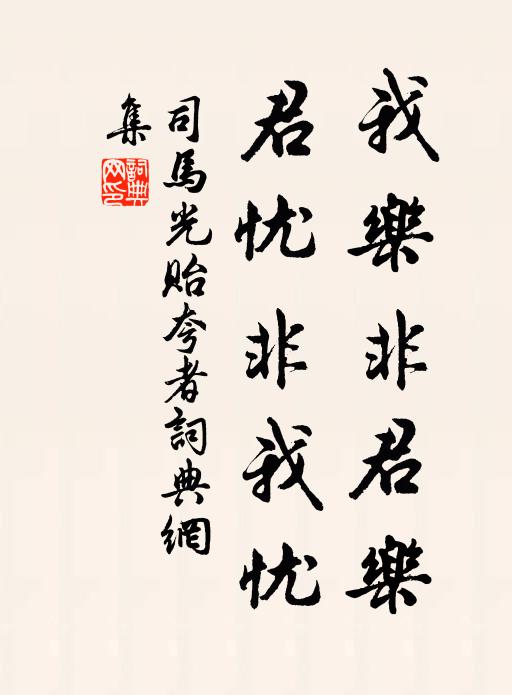 我樂非君樂
君忧非我忧
司馬光貽夸者詞典網
集
詞典網印